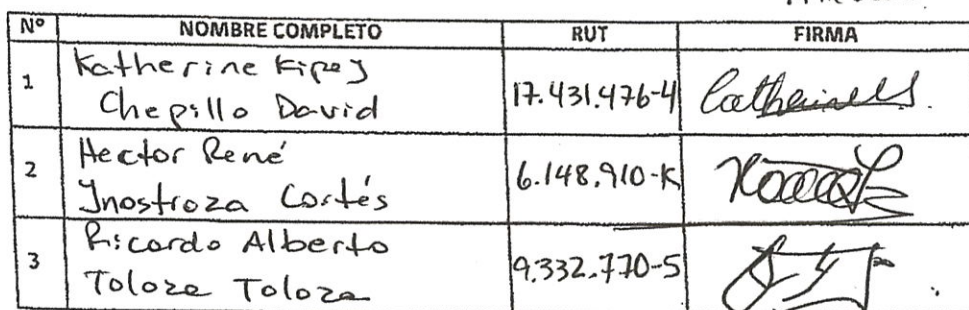 Nº NOMBRE COMPLETO RUT FIRMA
1 Katherine Kipey
Chepillo David 17.431.476-4
2 Hector René
Ynostroza Cortés 6.148.910-K
3 Ricardo Alberto
Toloza Toloza 9.332.770-5